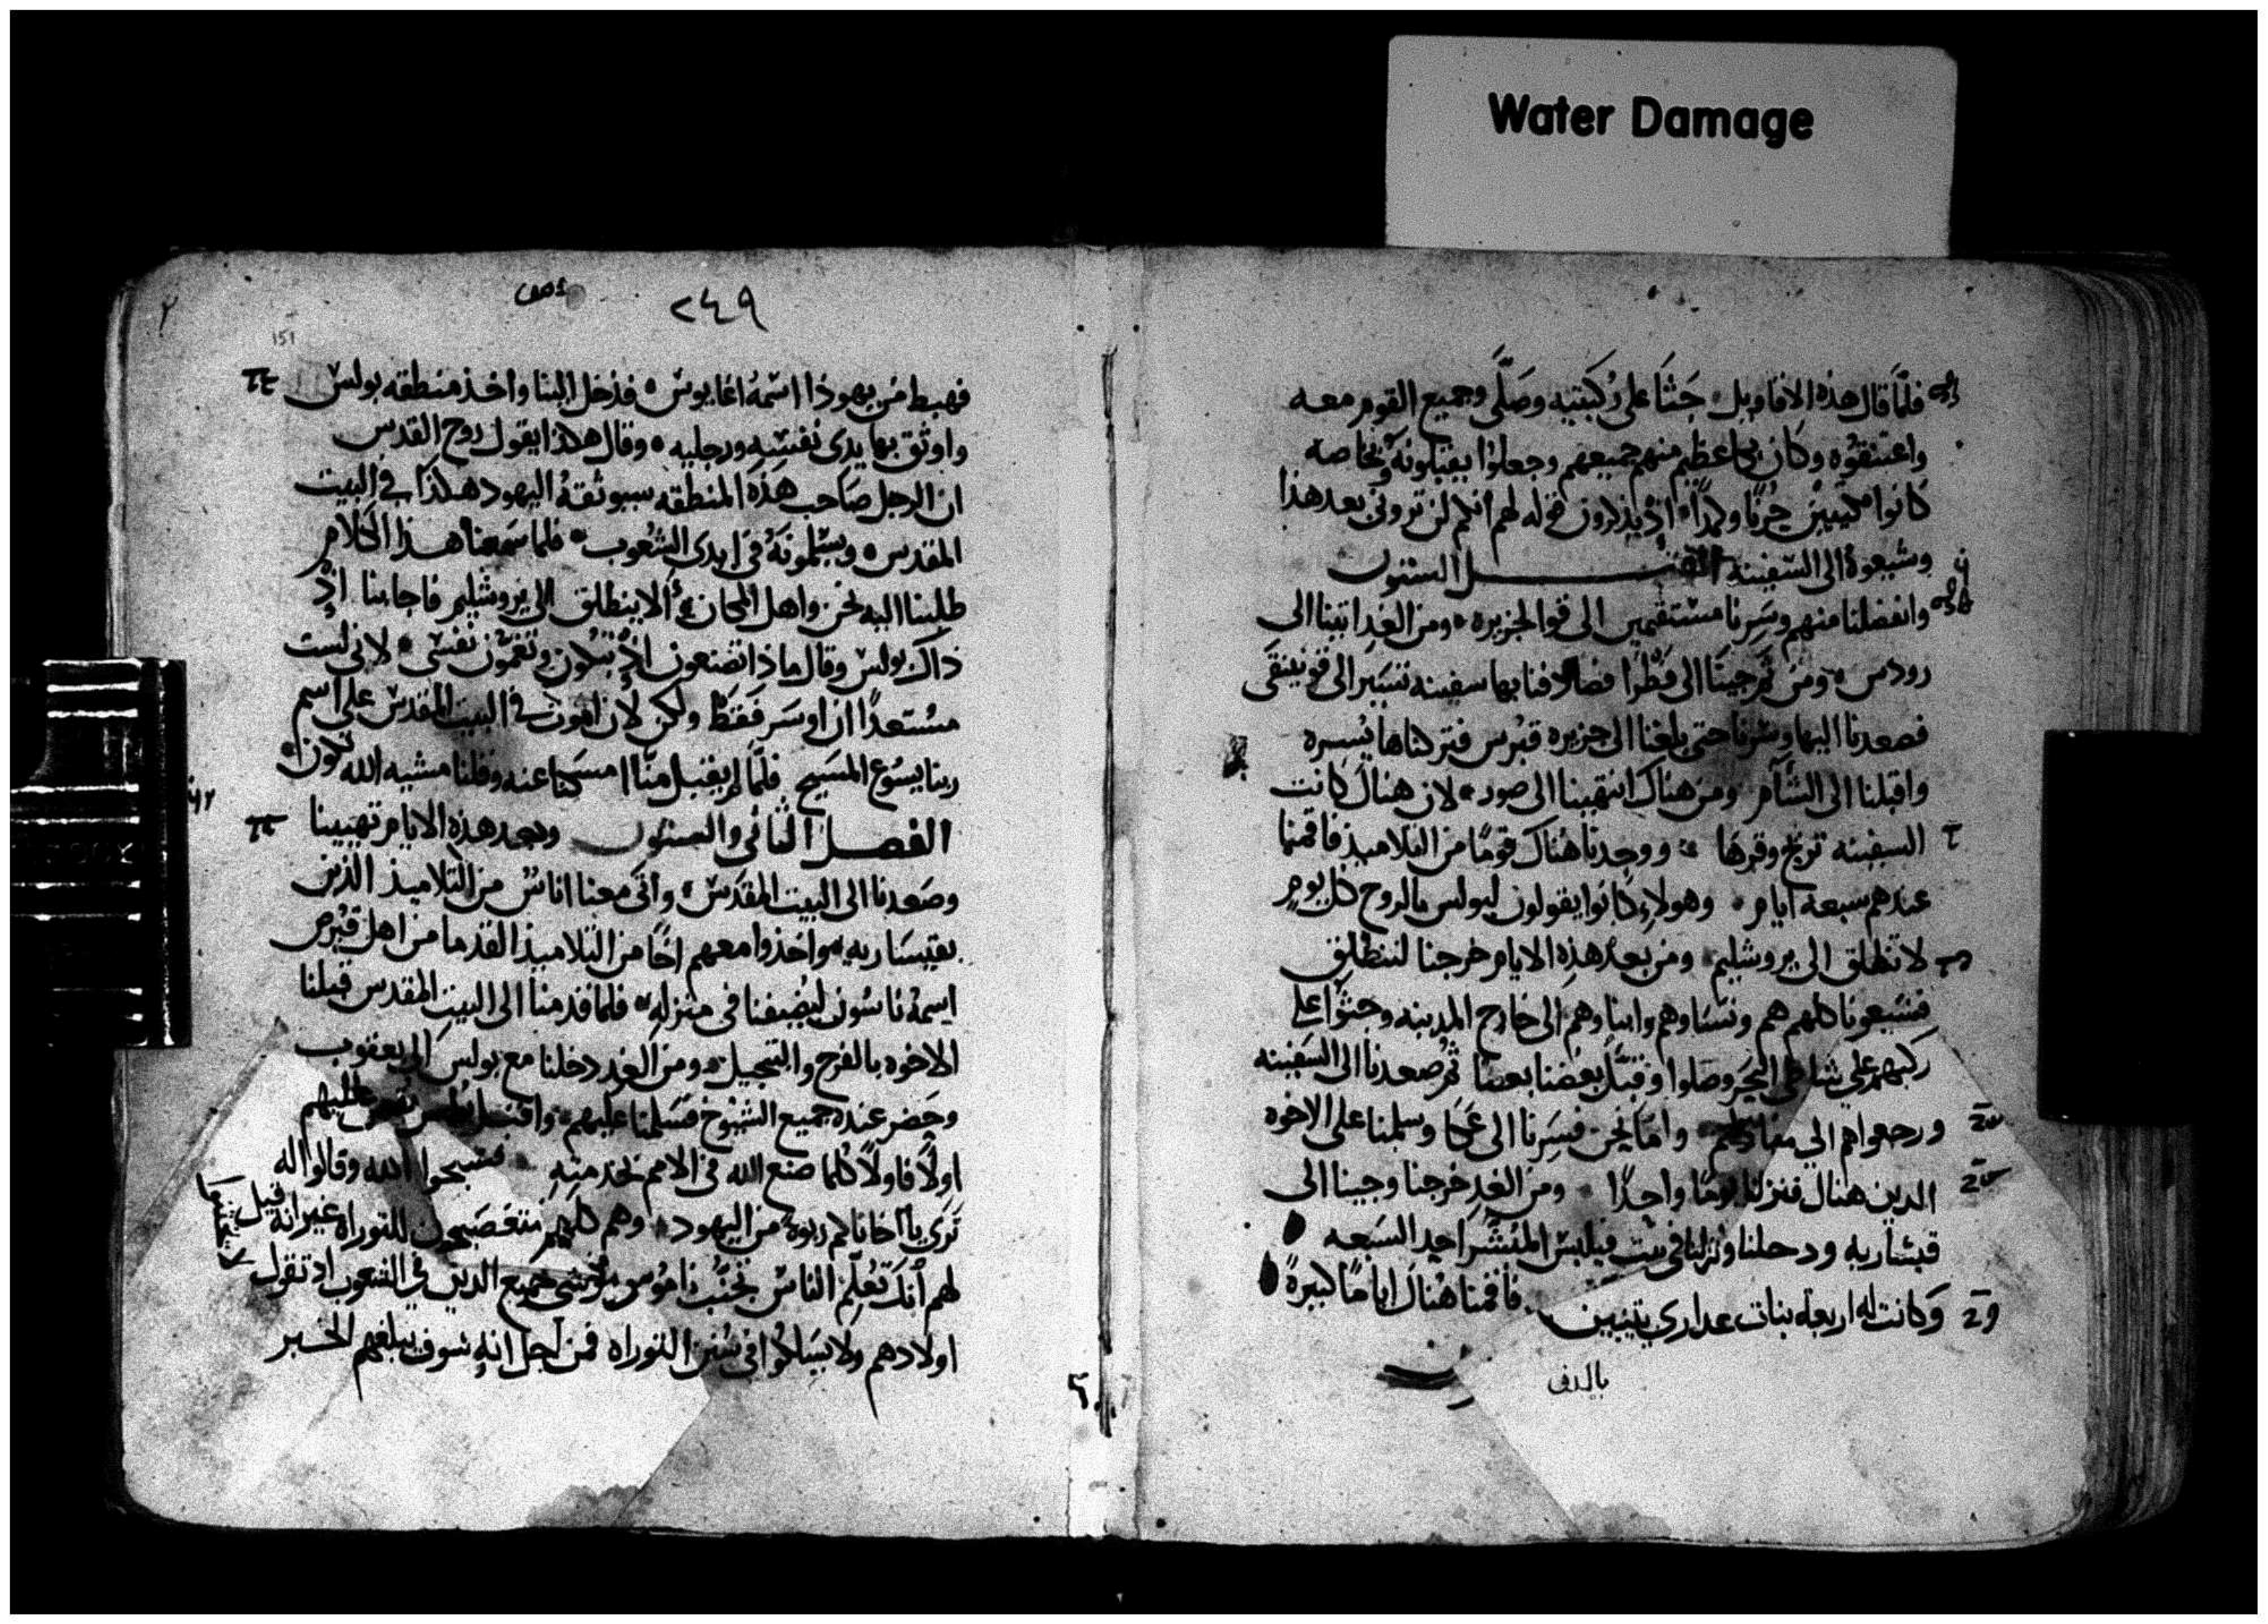 Water Damage
فلمّا قال هذه الاقاويل جَثا على رُكبتيه وصَلّى وجميع القوم معه
واعتنقوه وكان بكا عظيم منهم جميعهم وجعلوا يقبلونهُ وبخاصه
كانوا حُزنًا اذ يذكرون قوله لهم انكم لن تروني بعد هذا
وشيعوهُ الى السفينه الفصل الستون
وانفصلنا منهم وسَرنا مستقيمين الى قوا الجزيره ومن الغد اتينا الى
رودس ومن ثَم جينا الى فَطرا فصادفنا بها سفينه تسَير الى فونيقى
فصعدنا اليها وسرنا حتى بلغنا الى جزيره قبرس فتركناها يُسره
واقبلنا الى الشآم ومن هناك انتهينا الى صور لان هناك كانت
السفينه تريح وقرها ووجدنا هناك قومًا من التلاميذ فاقمنا
عندهم سبعة ايام وهولاءِ كانوا يقولون لبولس بالروح كل يومٍ
لا تنطلق الى يروشليم ومن بعد هذه الايام خرجنا لننطلق
فشيعونا كلهم هم ونسَاوهم وابناوهم الى خارج المدينه وجثوا على
ركبهم على شاطى البحر وصلوا وقبَّل بعضنا بعضًا ثم صعدنا الى السَفينه
ورجعوا هم الى منازلهم واما نحن فسِرنا الى عَكا وسلمنا على الاخوه
الدين هناك فنزلنا يومًا واحدًا ومن الغد خرجنا وجينا الى
قيشاريه ودخلنا ونزلنا في بيت فيلبس المُبشّر احد السَبعه
وكانت له اربعة بنات عداري يتنبين فاقمنا هُناك ايامًا كثيرةً
٢٤٩
151
فهبط من يهوذا اسمهُ اغابوس فدخل الينا واخذ منطقه بولس
واوثق بها يدى نفسه ورجليه وقال هكذا يقول روح القدس
ان الرجل صَاحب هذه المنطقه سيوثقهُ اليهود هكذا في البيت
المقدس ويسلمونهُ في ايدى الشُعوب فلما سَمعنا هذا الكلام
طلبنا اليه نحن واهل المكان ألا ينطلق الى يروشليم فاجابنا اذ
ذاك بولس وقال ماذا تصنعون اذ تبكون وتغمّون نفسى لانى لست
مستعدًا ان اوسَر فقط ولكن لان اموت في البيت المقدس على اسم
ربنا يسُوع المسَيح فلمّا لم يقبل منّا امسَكنا عنه وقلنا مشيه الله تكون
الفصل الثانى والستون وبعد هذه الايام تهيينا
وصَعدنا الى البيت المقدَس واتى معنا اناسٌ من التلاميذ الذين
بقيسَاريه واخذوا معهم اخًا من التلاميذ القدما من اهل قبُرص
اسمهُ ناسُون ليُضيفنا في منزله فلما قدمنا الى البيت المقدس قبلنا
الاخوه بالفرح والتبجيل ومن الغد دخلنا مع بولس الى يعقوب
وحَضر عنده جميع الشيُوخ فسَلمنا عليهم عليهم
اولًا فاولًا كلما صنع الله في الامم بخدمتهِ فسبحوا الله وقالوا له
تَرَى يا اخانا كم ربوة من اليهود وهم كلهم متعصبون للتوراه غير انه قيل
لهم انك تعُلم الناسَ تجنّب نامُوس موسى جميع الدين في الشعوب اذ تقول
اولادهم ولا يسَلكوا في سُنن التوراه فمن اجل انه سَوف يبلغهم الخبر